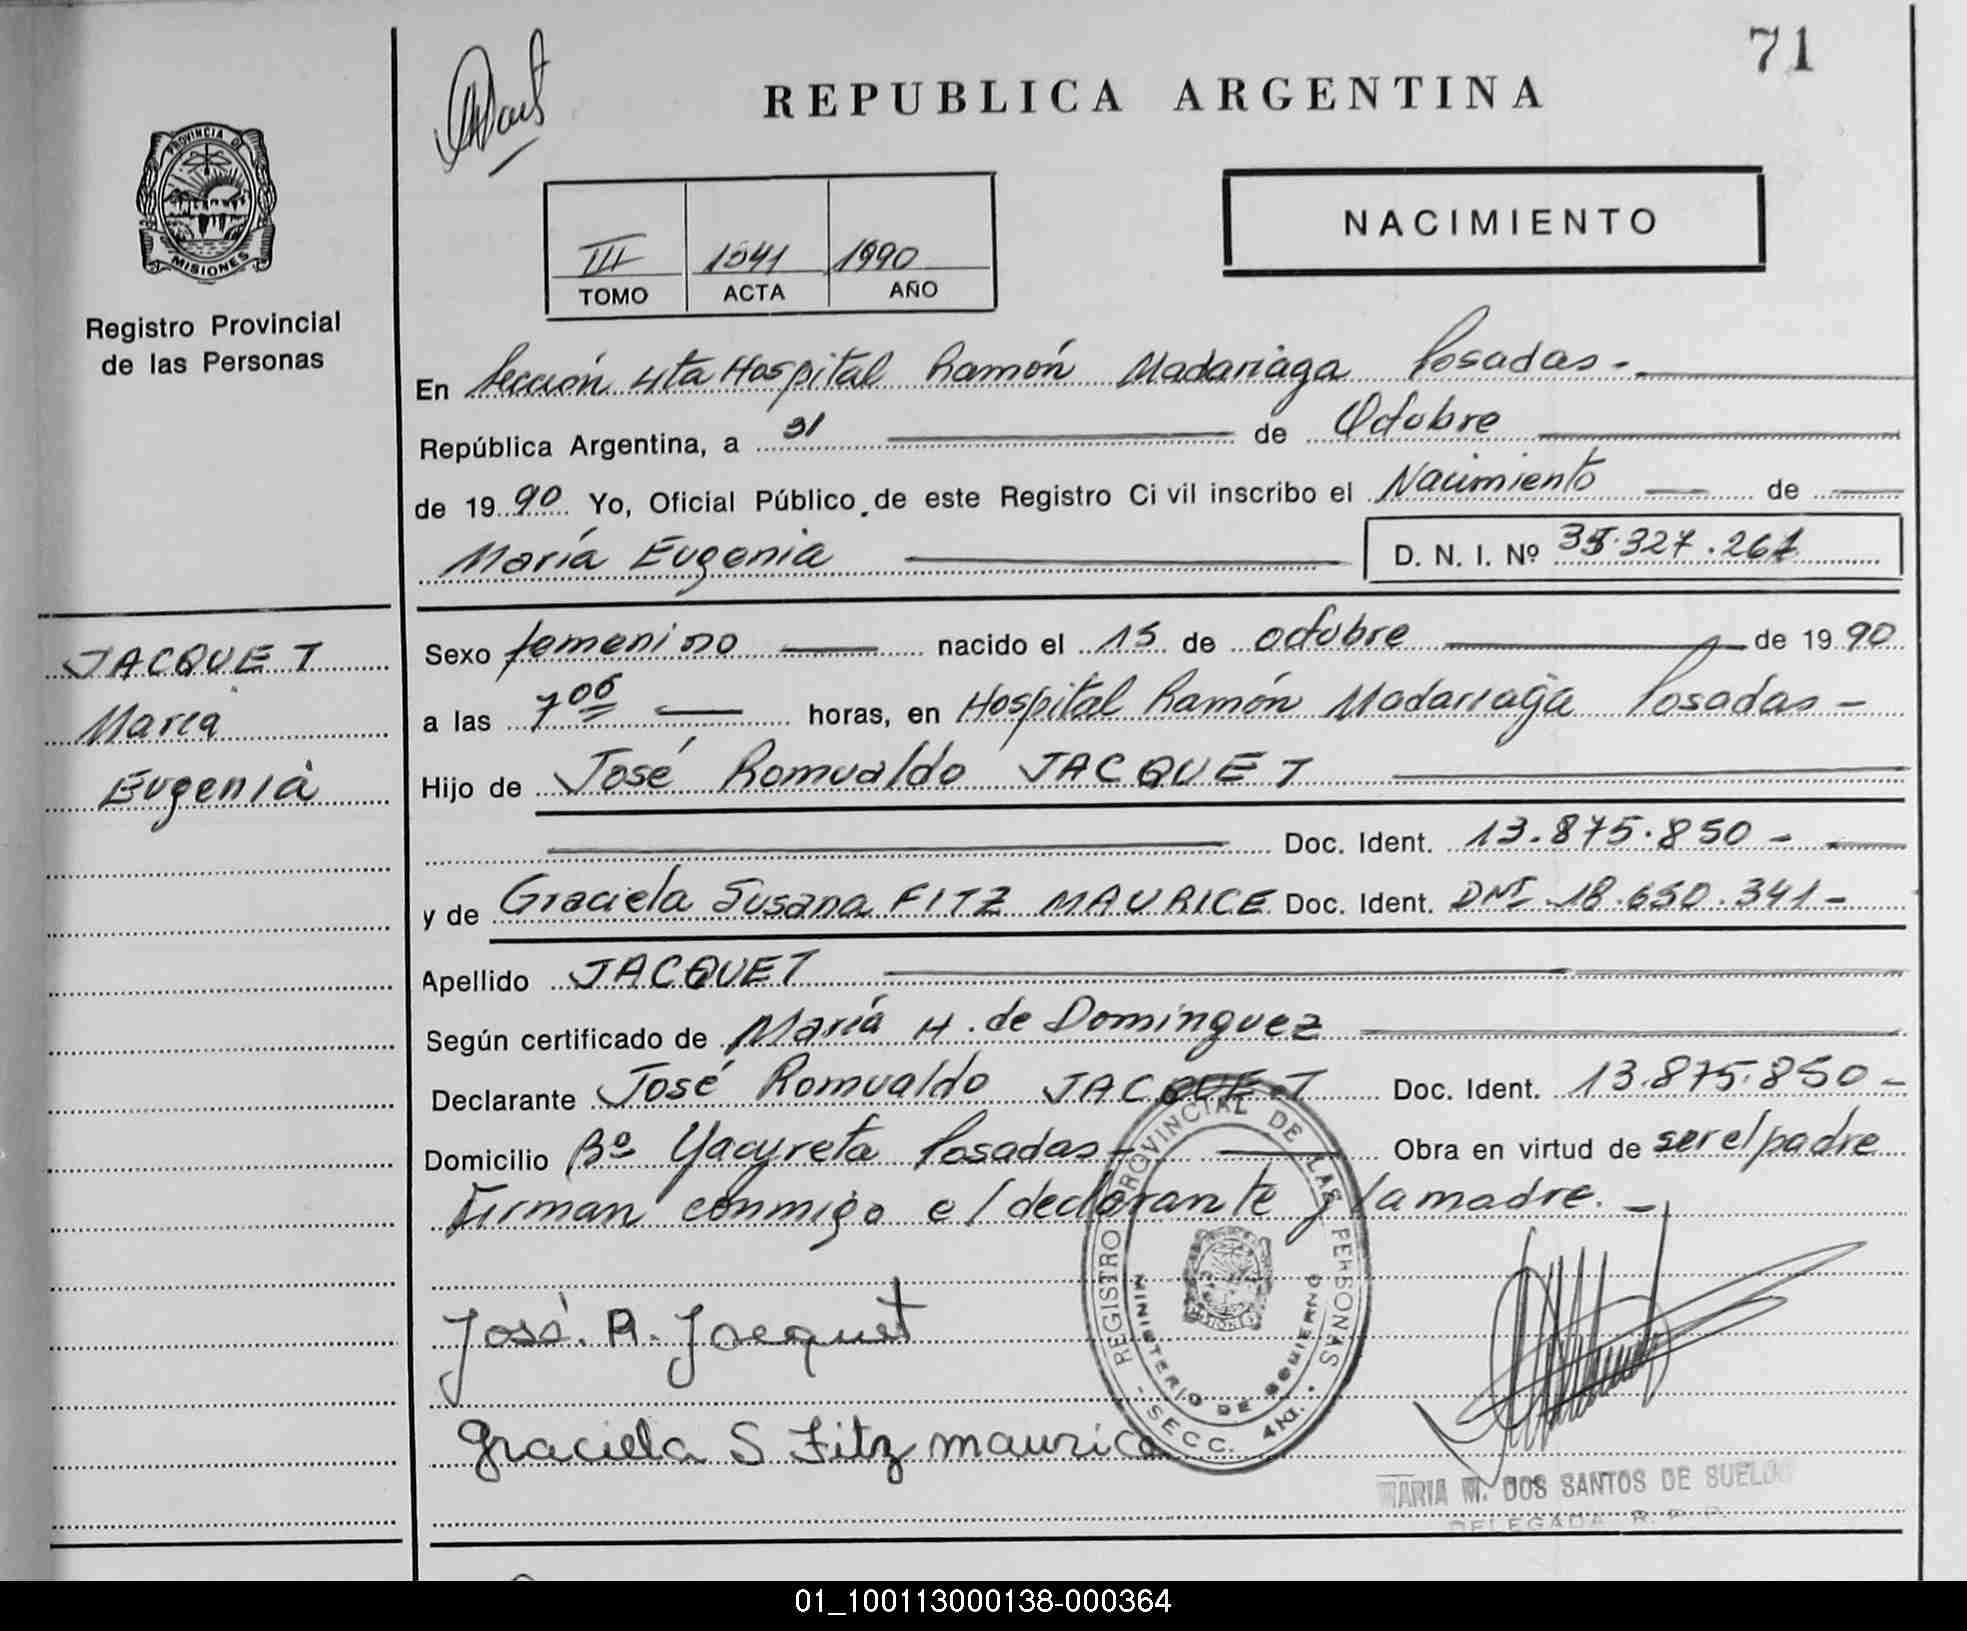 71
REPUBLICA ARGENTINA
PROVINCIA DE
MISIONES
Registro Provincial
de las Personas
III 1541 1990
TOMO ACTA AÑO
NACIMIENTO
En Sección 4ta Hospital Ramón Madariaga Posadas.-
República Argentina, a 31 de Octubre
de 1990 Yo, Oficial Público de este Registro Civil inscribo el Nacimiento de
María Eugenia D. N. I. Nº 35.327.267
JACQUET
María
Eugenia
Sexo femenino nacido el 15 de octubre de 1990
a las 7 05 horas, en Hospital Ramón Madariaga Posadas -
Hijo de José Romualdo JACQUET
Doc. Ident. 13.875.850 -
y de Graciela Susana FITZ MAURICE Doc. Ident. DNI 18.650.341-
Apellido JACQUET
Según certificado de María H. de Dominguez
Declarante José Romualdo JACQUET Doc. Ident. 13.875.850-
Domicilio Bº Yacyreta Posadas- Obra en virtud de ser el padre
Firman conmigo el declarante y la madre.-
REGISTRO PROVINCIAL DE LAS PERSONAS
MINISTERIO DE GOBIERNO
SECC. 4ta.
José. R. Jacquet
Graciela S Fitz maurice
MARIA M. DOS SANTOS DE SUELDO
DELEGADA R. P. P.
01_100113000138-000364